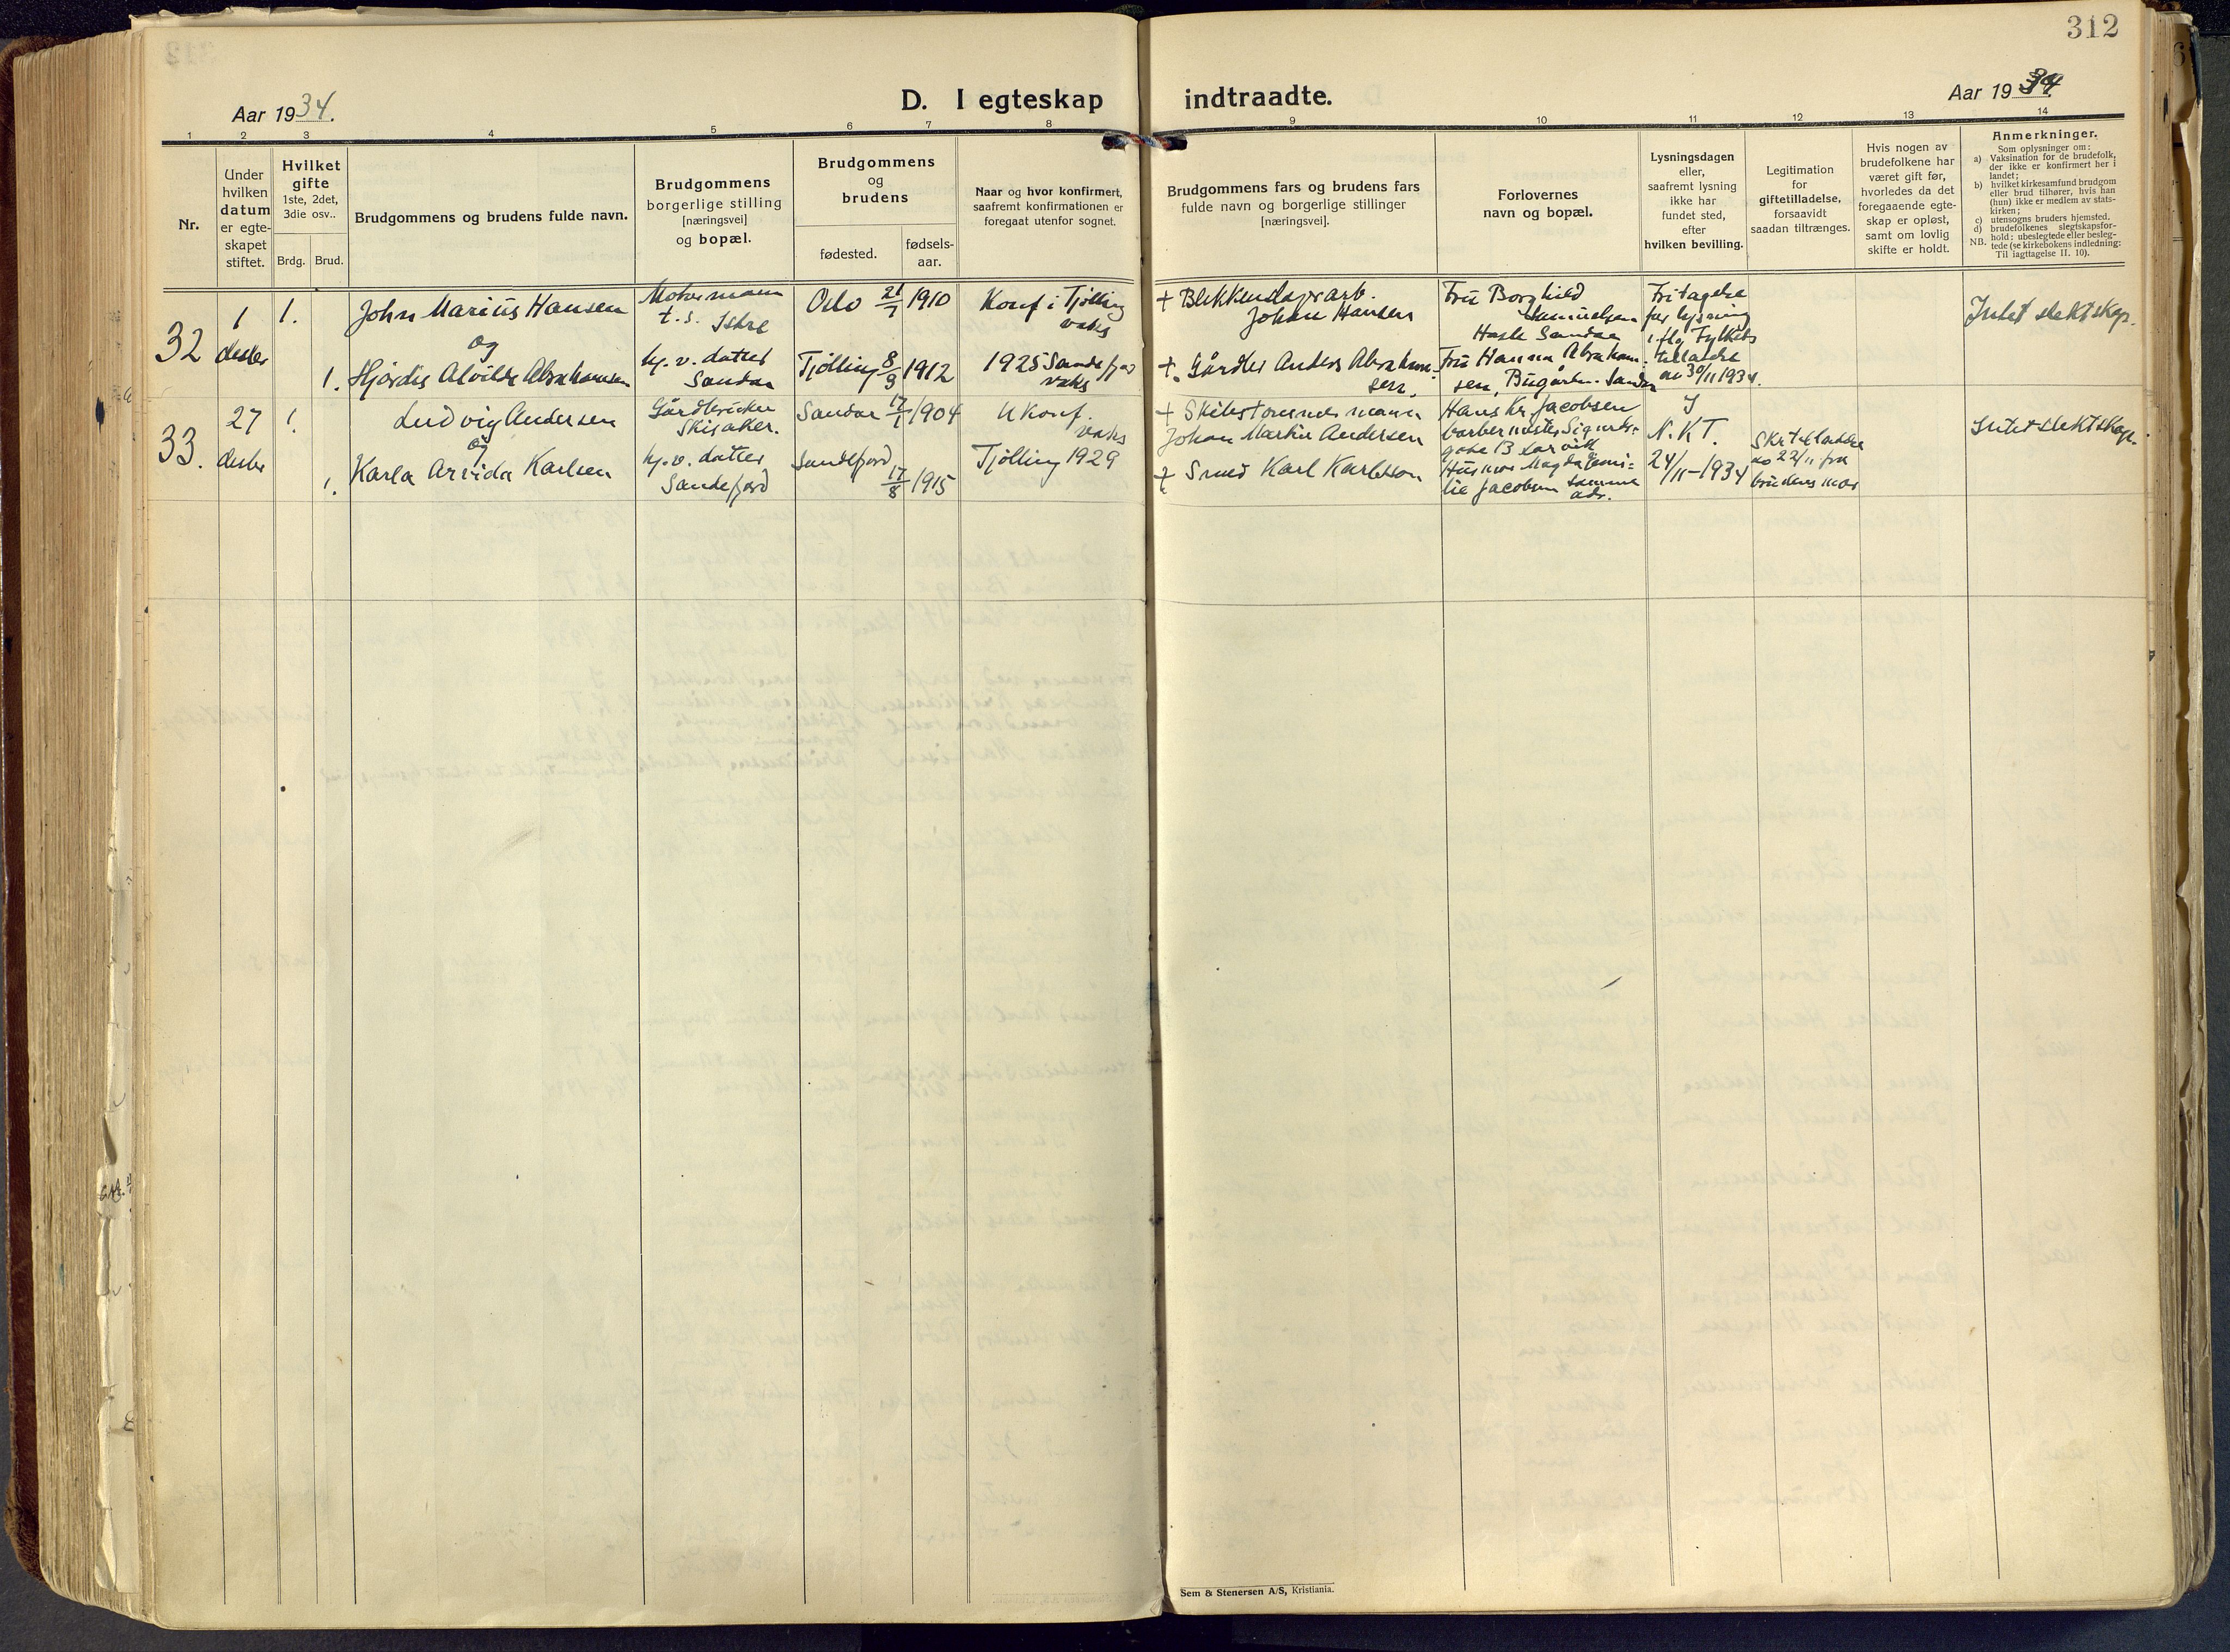 312
Aar 1934.
D. I egteskap
indtraadte.
Aar 1934
1 2 3 4 5 6 7 8 9 10 11 12 13 14
Nr.
Under
hvilken
datum
er egte-
skapet
stiftet.
Hvilket
gifte
1ste, 2det,
3die osv..
Brdg. Brud.
Brudgommens og brudens fulde navn.
Brudgommens
borgerlige stilling
[næringsvei]
og bopæl.
Brudgommens
og
brudens
fødested.
fødsels-
aar.
Naar og hvor konfirmert,
saafremt konfirmationen er
foregaat utenfor sognet.
Brudgommens fars og brudens fars
fulde navn og borgerlige stillinger
[næringsvei].
Forlovernes
navn og bopæl.
Lysningsdagen
eller,
saafremt lysning
ikke har
fundet sted,
efter
hvilken bevilling.
Legitimation
for
giftetilladelse,
forsaavidt
saadan tiltrænges.
Hvis nogen av
brudefolkene har
været gift før,
hvorledes da det
foregaaende egte-
skap er opløst,
samt om lovlig
skifte er holdt.
Anmerkninger.
Som oplysninger om:
a) Vaksination for de brudefolk,
der ikke er konfirmert her i
landet;
b) hvilket kirkesamfund brudgom
eller brud tilhører, hvis han
(hun) ikke er medlem av stats-
kirken;
c) utensogns bruders hjemsted.
d) brudefolkenes slegtskapsfor-
hold: ubeslegtede eller besleg-
NB. tede (se kirkebokens indledning:
Til iagttagelse II. 10).
32
1
desbr
1.
John Marius Hansen
og
1. Hjørdis Alvilde Abrahamsen
Motormann
t.s. Istre
hj. v. datter
Sandar
Oslo 21/1 1910
Tjølling 8/9 1912
Konf i Tjølling
vaks
1925 Sandefjord
vaks
+ Blikkenslagerarb.
Johan Hansen
+ Gårdbr Anders Abraham-
sen.
Fru Borghild
Samuelsen
Hasle Sandar
Fru Hanna Abraham-
sen, Bugården Sandar
Fritagelse
for lysning
iflg Fylkets
tillatelse
av 30/11 1934.
Intet slektskap.
33.
27
desbr
1.
Ludvig Andersen
og
1. Karla Arvida Karlsen
Gårdbruker
Skisaker.
hj. v. datter
Sandefjord
Sandar 17/1 1904
Sandefjord
17/8 1915
Ukonf.
vaks
Tjølling 1929
+ Skibstømmermann
Johan Martin Andersen
+ Smed Karl Karlsson
Hans Kr Jacobsen
barbermester Sigurds-
gate 13 Larvik
Husmor Magda Emi-
lie Jacobsen samme
adr.
I
N.K.T.
24/11-1934
Skr tillatelse
av 22/11 fra
brudens mor
Intet slektskap.
Sem & Stenersen A/S, Kristiania.